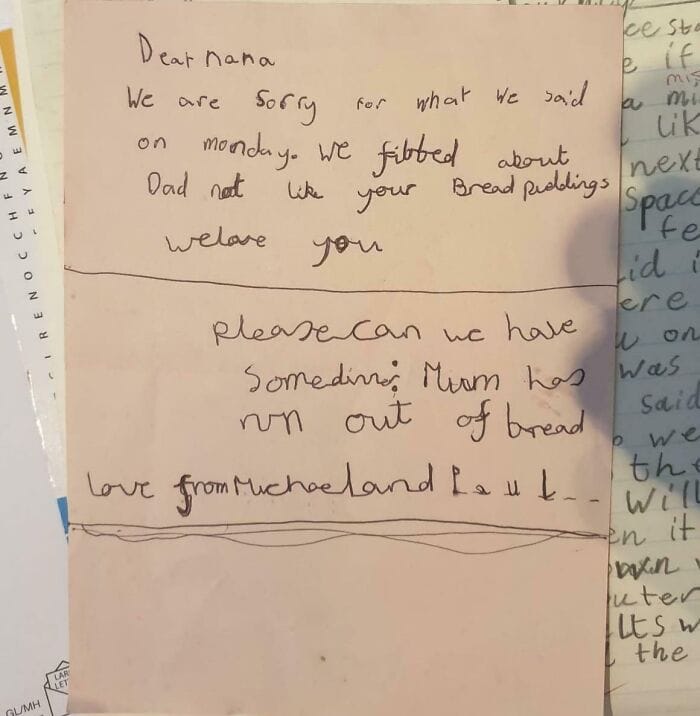 Dear nana
We are sorry for what we said
on monday. we fibbed about
Dad not like your Bread puddings
welove you
please can we have
Some Mum has
run out of bread
love from Michael and
ce sta
e if
mis
a mi
lik
next
Spac
fe
id i
ere
u on
was
said
we
the
will
en it
own
uter
lts w
the
C I R E N O C C H F N
E Y A E M N M
LAR
LET
GL/MH